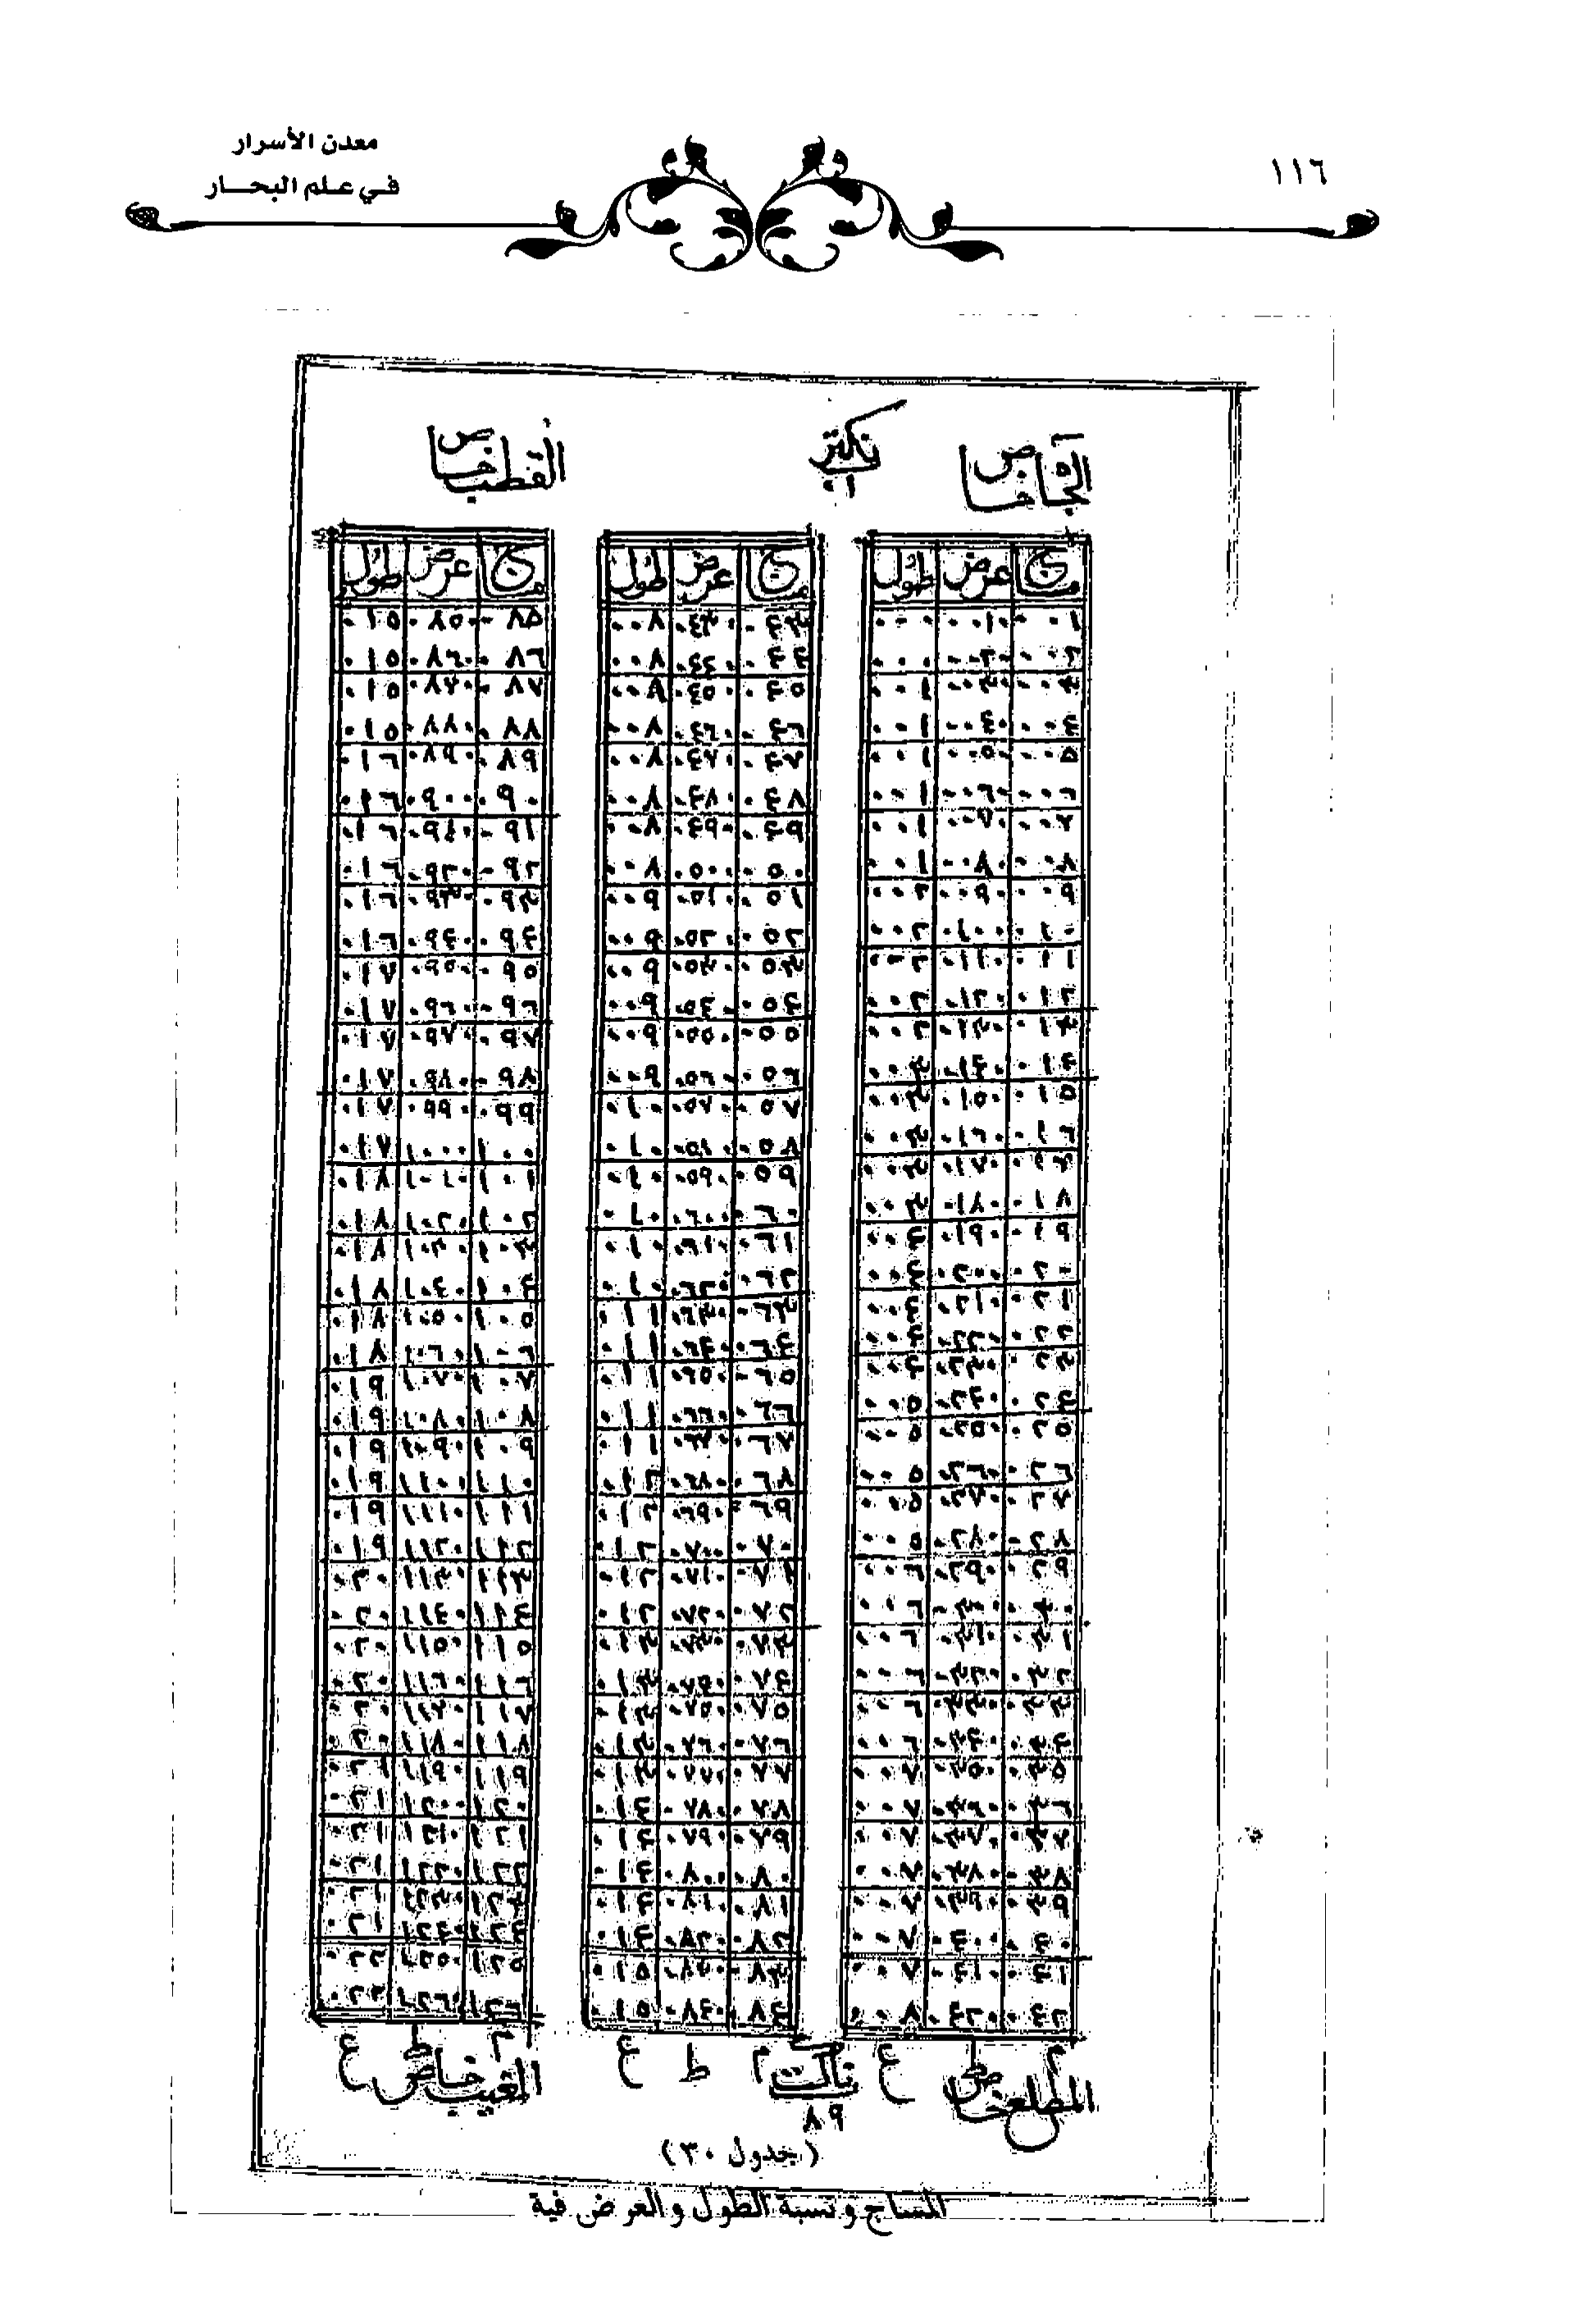 معدن الأسرار
في علم البحــار
١١٦
الجاه خاص
نكتيز
٠١
القطب خاص
مساج عرض طول
٠٠١ ٠٠١٠ ٠٠٠
٠٠٢ ٠٠٢٠ ٠٠٠
٠٠٣ ٠٠٣٠ ٠٠١
٠٠٤ ٠٠٤٠ ٠٠١
٠٠٥ ٠٠٥٠ ٠٠١
٠٠٦ ٠٠٦٠ ٠٠١
٠٠٧ ٠٠٧٠ ٠٠١
٠٠٨ ٠٠٨٠ ٠٠١
٠٠٩ ٠٠٩٠ ٠٠٢
٠١٠ ٠١٠٠ ٠٠٢
٠١١ ٠١١٠ ٠٠٢
٠١٢ ٠١٢٠ ٠٠٢
٠١٣ ٠١٣٠ ٠٠٢
٠١٤ ٠١٤٠ ٠٠٣
٠١٥ ٠١٥٠ ٠٠٣
٠١٦ ٠١٦٠ ٠٠٣
٠١٧ ٠١٧٠ ٠٠٣
٠١٨ ٠١٨٠ ٠٠٣
٠١٩ ٠١٩٠ ٠٠٤
٠٢٠ ٠٢٠٠ ٠٠٤
٠٢١ ٠٢١٠ ٠٠٤
٠٢٢ ٠٢٢٠ ٠٠٤
٠٢٣ ٠٢٣٠ ٠٠٤
٠٢٤ ٠٢٤٠ ٠٠٥
٠٢٥ ٠٢٥٠ ٠٠٥
٠٢٦ ٠٢٦٠ ٠٠٥
٠٢٧ ٠٢٧٠ ٠٠٥
٠٢٨ ٠٢٨٠ ٠٠٥
٠٢٩ ٠٢٩٠ ٠٠٦
٠٣٠ ٠٣٠٠ ٠٠٦
٠٣١ ٠٣١٠ ٠٠٦
٠٣٢ ٠٣٢٠ ٠٠٦
٠٣٣ ٠٣٣٠ ٠٠٦
٠٣٤ ٠٣٤٠ ٠٠٦
٠٣٥ ٠٣٥٠ ٠٠٧
٠٣٦ ٠٣٦٠ ٠٠٧
٠٣٧ ٠٣٧٠ ٠٠٧
٠٣٨ ٠٣٨٠ ٠٠٧
٠٣٩ ٠٣٩٠ ٠٠٧
٠٤٠ ٠٤٠٠ ٠٠٧
٠٤١ ٠٤١٠ ٠٠٧
٠٤٢ ٠٤٢٠ ٠٠٨
مساج عرض طول
٠٤٣ ٠٤٣٠ ٠٠٨
٠٤٤ ٠٤٤٠ ٠٠٨
٠٤٥ ٠٤٥٠ ٠٠٨
٠٤٦ ٠٤٦٠ ٠٠٨
٠٤٧ ٠٤٧٠ ٠٠٨
٠٤٨ ٠٤٨٠ ٠٠٨
٠٤٩ ٠٤٩٠ ٠٠٨
٠٥٠ ٠٥٠٠ ٠٠٨
٠٥١ ٠٥١٠ ٠٠٩
٠٥٢ ٠٥٢٠ ٠٠٩
٠٥٣ ٠٥٣٠ ٠٠٩
٠٥٤ ٠٥٤٠ ٠٠٩
٠٥٥ ٠٥٥٠ ٠٠٩
٠٥٦ ٠٥٦٠ ٠٠٩
٠٥٧ ٠٥٧٠ ٠١٠
٠٥٨ ٠٥٨٠ ٠١٠
٠٥٩ ٠٥٩٠ ٠١٠
٠٦٠ ٠٦٠٠ ٠١٠
٠٦١ ٠٦١٠ ٠١٠
٠٦٢ ٠٦٢٠ ٠١٠
٠٦٣ ٠٦٣٠ ٠١١
٠٦٤ ٠٦٤٠ ٠١١
٠٦٥ ٠٦٥٠ ٠١١
٠٦٦ ٠٦٦٠ ٠١١
٠٦٧ ٠٦٧٠ ٠١١
٠٦٨ ٠٦٨٠ ٠١٢
٠٦٩ ٠٦٩٠ ٠١٢
٠٧٠ ٠٧٠٠ ٠١٢
٠٧١ ٠٧١٠ ٠١٢
٠٧٢ ٠٧٢٠ ٠١٢
٠٧٣ ٠٧٣٠ ٠١٣
٠٧٤ ٠٧٥٠ ٠١٣
٠٧٥ ٠٧٥٠ ٠١٣
٠٧٦ ٠٧٦٠ ٠١٣
٠٧٧ ٠٧٧٠ ٠١٣
٠٧٨ ٠٧٨٠ ٠١٤
٠٧٩ ٠٧٩٠ ٠١٤
٠٨٠ ٠٨٠٠ ٠١٤
٠٨١ ٠٨١٠ ٠١٤
٠٨٢ ٠٨٢٠ ٠١٤
٠٨٣ ٠٨٣٠ ٠١٥
٠٨٤ ٠٨٤٠ ٠١٥
مساج عرض طول
٠٨٥ ٠٨٥٠ ٠١٥
٠٨٦ ٠٨٦٠ ٠١٥
٠٨٧ ٠٨٧٠ ٠١٥
٠٨٨ ٠٨٨٠ ٠١٥
٠٨٩ ٠٨٩٠ ٠١٦
٠٩٠ ٠٩٠٠ ٠١٦
٠٩١ ٠٩١٠ ٠١٦
٠٩٢ ٠٩٢٠ ٠١٦
٠٩٣ ٠٩٣٠ ٠١٦
٠٩٤ ٠٩٤٠ ٠١٦
٠٩٥ ٠٩٥٠ ٠١٧
٠٩٦ ٠٩٦٠ ٠١٧
٠٩٧ ٠٩٧٠ ٠١٧
٠٩٨ ٠٩٨٠ ٠١٧
٠٩٩ ٠٩٩٠ ٠١٧
١٠٠ ١٠٠٠ ٠١٧
١٠١ ١٠١٠ ٠١٨
١٠٢ ١٠٢٠ ٠١٨
١٠٣ ١٠٣٠ ٠١٨
١٠٤ ١٠٤٠ ٠١٨
١٠٥ ١٠٥٠ ٠١٨
١٠٦ ١٠٦٠ ٠١٨
١٠٧ ١٠٧٠ ٠١٩
١٠٨ ١٠٨٠ ٠١٩
١٠٩ ١٠٩٠ ٠١٩
١١٠ ١١٠٠ ٠١٩
١١١ ١١١٠ ٠١٩
١١٢ ١١٢٠ ٠١٩
١١٣ ١١٣٠ ٠٢٠
١١٤ ١١٤٠ ٠٢٠
١١٥ ١١٥٠ ٠٢٠
١١٦ ١١٦٠ ٠٢٠
١١٧ ١١٧٠ ٠٢٠
١١٨ ١١٨٠ ٠٢٠
١١٩ ١١٩٠ ٠٢١
١٢٠ ١٢٠٠ ٠٢١
١٢١ ١٢١٠ ٠٢١
١٢٢ ١٢٢٠ ٠٢١
١٢٣ ١٢٣٠ ٠٢١
١٢٤ ١٢٤٠ ٠٢١
١٢٥ ١٢٥٠ ٠٢٢
١٢٦ ١٢٦٠ ٠٢٢
م ط ع
م ط ع
م ط ع
المطلع خاص
ناكت
٨٩
المغيب خاص
(جدول ٣٠)
المساج ونسبة الطول والعرض فية